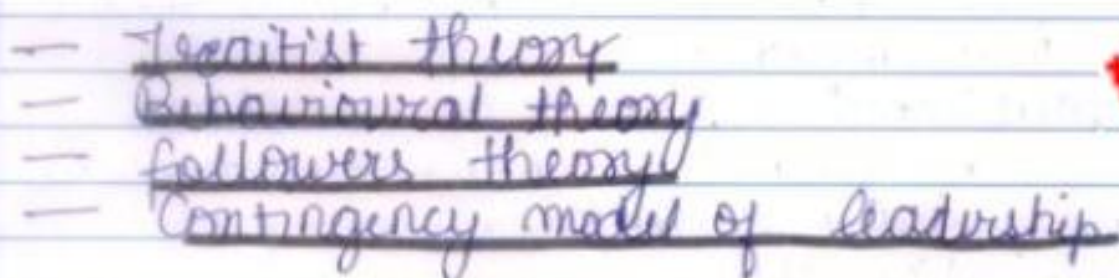 — Traitist theory
— Behavioural theory
— followers theory
— Contingency model of leadership